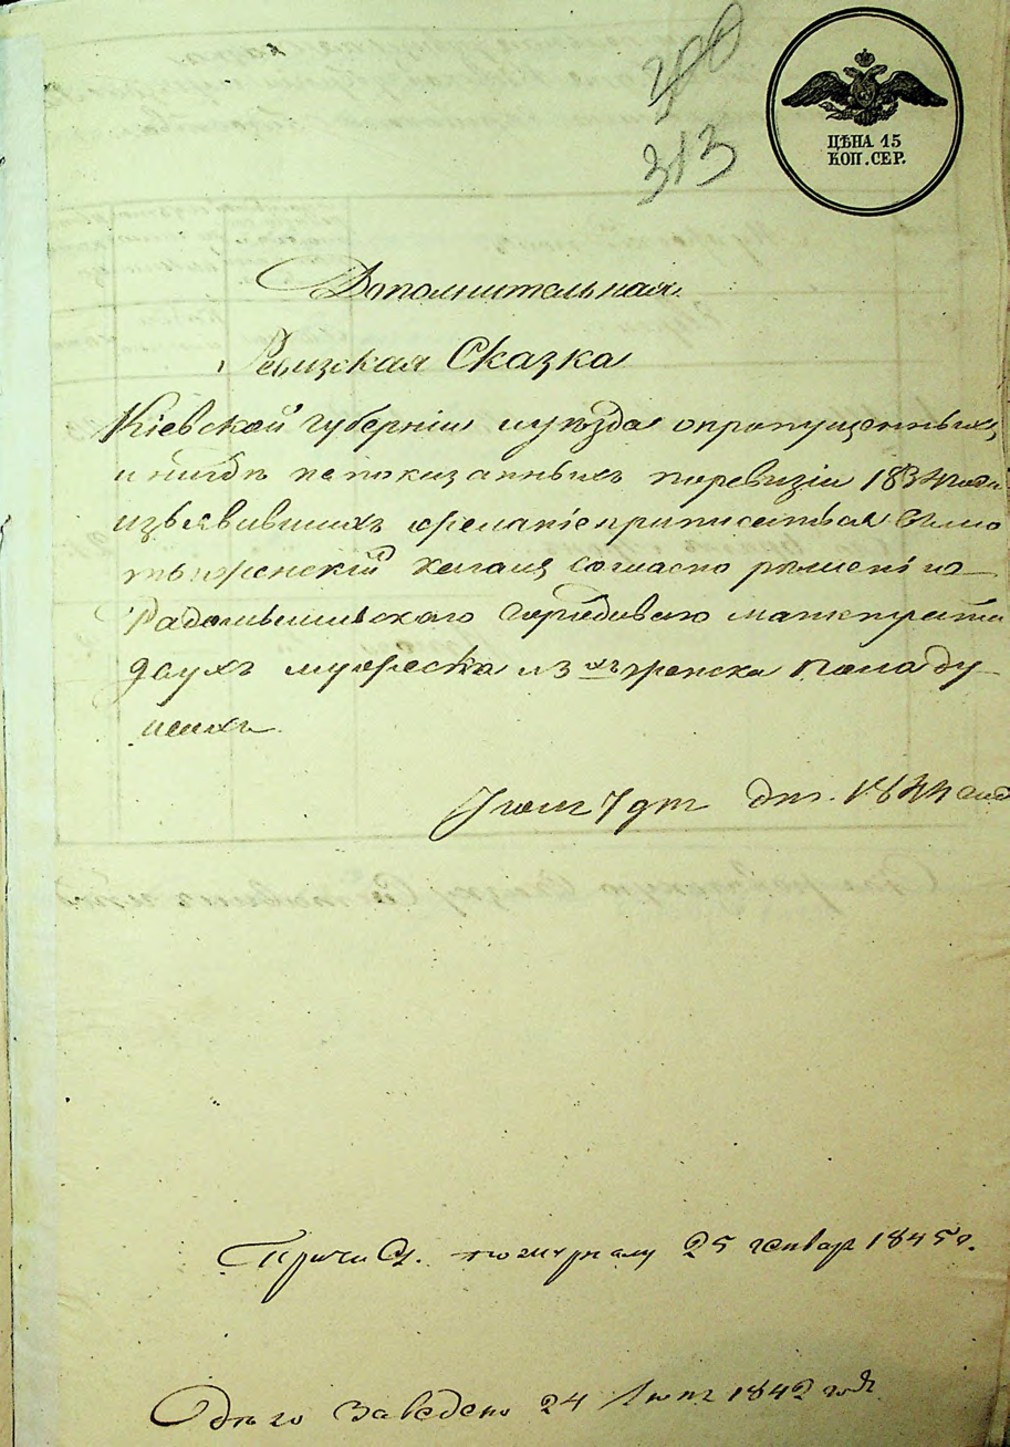 300
313
ЦѢНА 15
КОП. СЕР.
Дополнительная
Ревизская Сказка
Кіевской Губерніи и уѣзда о пропущенныхъ
и нигдѣ не показанныхъ по ревизіи 1834 года
изъявившихъ желаніе приписаться въ
согласно рѣшенію
Радомысльскаго Городоваго магистрата
двухъ мужеска изъ женска пола ду
шахъ
7 дня 1844 года
Причис. по журналу 25 генвар 1845 г.
Дѣло заведено 24 1842 года